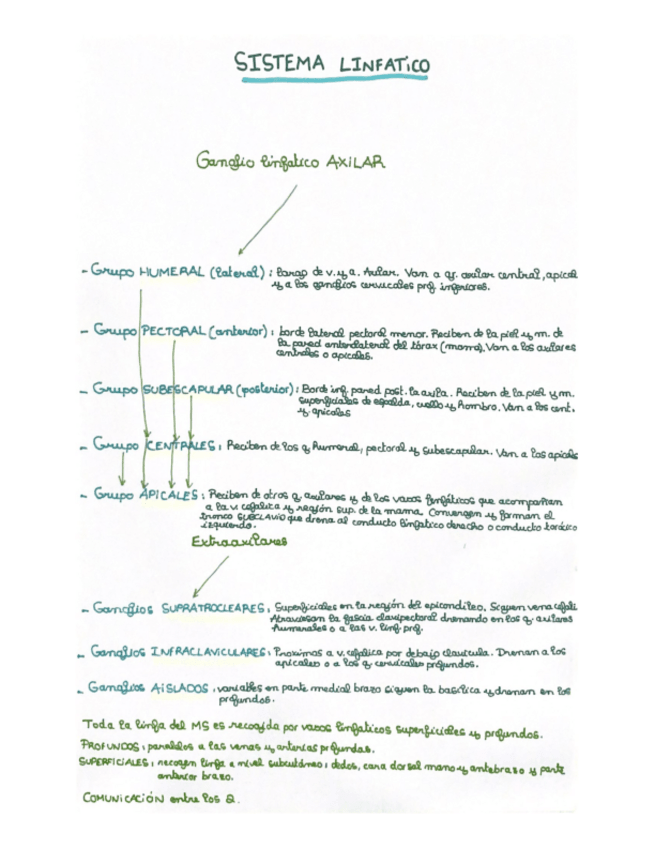 SISTEMA LINFATICO
Ganglio linfatico AXILAR
- Grupo HUMERAL (lateral): largo de v. y a. Axilar. Van a gr. axilar central, apical
y a los ganglios cervicales prof. inferiores.
- Grupo PECTORAL (anterior): borde lateral pectoral menor. Reciben de la piel y m. de
la pared anterolateral del tórax (mama). Van a los axilares
centrales o apicales.
- Grupo SUBESCAPULAR (posterior): Borde inf. pared post. la axila. Reciben de la piel y m.
superficiales de espalda, cuello y hombro. Van a los cent.
y apicales
- Grupo CENTRALES: Reciben de los g humeral, pectoral y subescapular. Van a los apicales
- Grupo APICALES: Reciben de otros g axilares y de los vasos linfáticos que acompañan
a la v. cefalica y región sup. de la mama. Convergen y forman el
tronco SUBCLAVIO que drena al conducto linfatico derecho o conducto torácico
izquierdo.
Extraaxilares
- Ganglios SUPRATROCLEARES: Superficiales en la región del epicondileo. Siguen vena cefali
Atraviesan la fascia clavipectoral drenando en los g. axilares
humerales o a las v. linf. prof.
- Ganglios INFRACLAVICULARES: Proximos a v. cefalica por debajo clavicula. Drenan a los
apicales o a los g. cervicales profundos.
- Ganglios AISLADOS: variables en parte medial brazo siguen la basilica y drenan en los
profundos.
Toda la linfa del MS es recogida por vasos linfaticos superficiales y profundos.
PROFUNDOS: paralelos a las venas y arterias profundas.
SUPERFICIALES: recogen linfa a nivel subcutáneo: dedos, cara dorsal mano y antebrazo y parte
anterior brazo.
COMUNICACIÓN entre los 2.